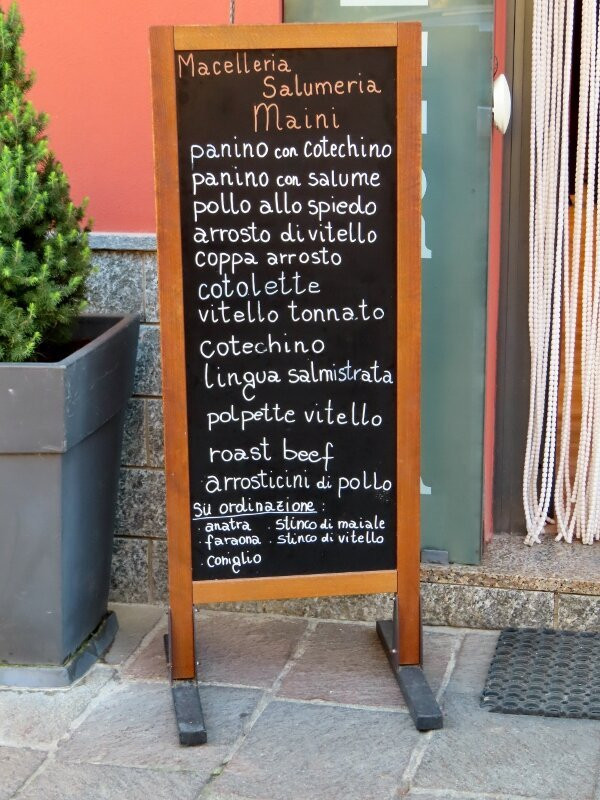 Macelleria
Salumeria
Maini
panino con cotechino
panino con salume
pollo allo spiedo
arrosto di vitello
coppa arrosto
cotolette
vitello tonnato
cotechino
lingua salmistrata
polpette vitello
roast beef
arrosticini di pollo
Su ordinazione :
. anatra . stinco di maiale
. faraona . stinco di vitello
. coniglio